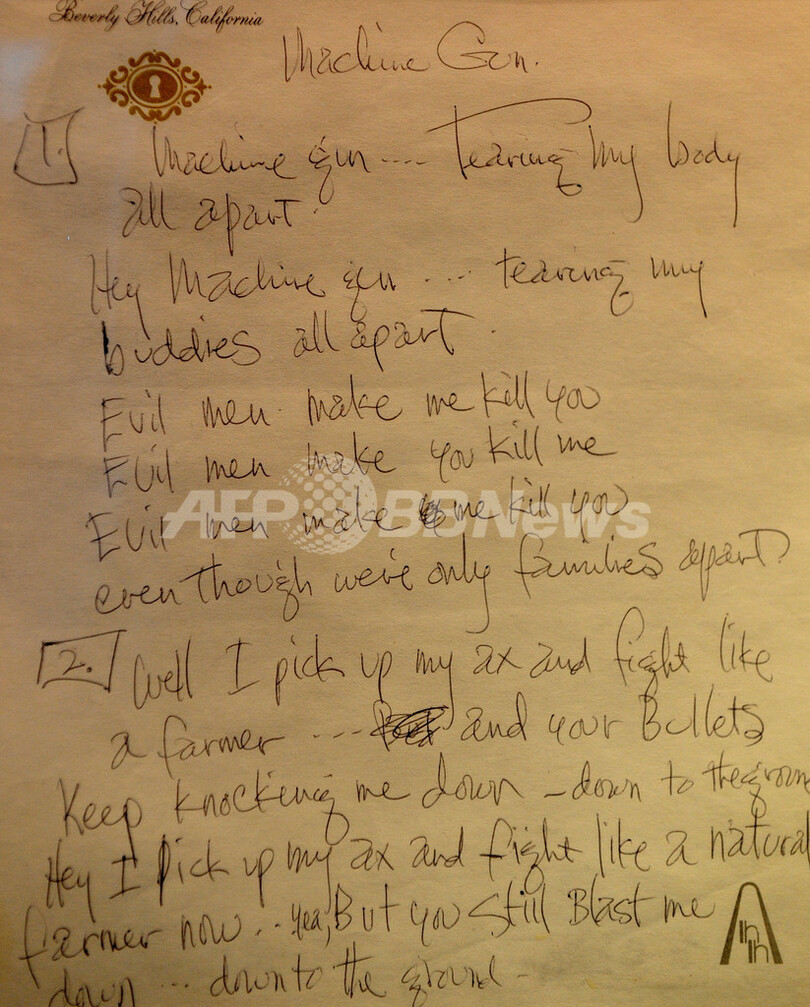 Beverly Hills, California
Machine Gun.
1.
Machine gun .... Tearing my body
all apart.
Hey Machine gun .... tearing my
buddies all apart.
Evil men make me kill you
Evil men make you kill me
AFP BBNews
Evil men make me kill you
even though we're only families apart?
2. Well I pick up my ax and fight like
a farmer ... and your Bullets
Keep knocking me down - down to the groun
Hey I pick up my ax and fight like a natural
farmer now .. yea, But you Still Blast me
down ... down to the ground -